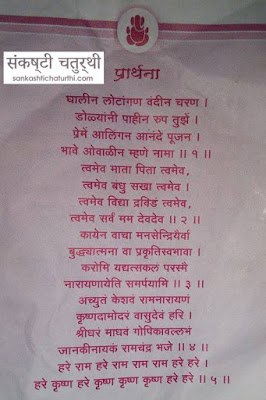 संकष्टी चतुर्थी
sankashtichaturthi.com
प्रार्थना
घालीन लोटांगण वंदीन चरण ।
डोळ्यांनी पाहीन रुप तुझें ।
प्रेमें आलिंगन आनंदे पूजन ।
भावे ओवाळीन म्हणे नामा ।। १ ।।
त्वमेव माता पिता त्वमेव,
त्वमेव बंधु सखा त्वमेव ।
त्वमेव विद्या द्रविडं त्वमेव,
त्वमेव सर्वं मम देवदेव ।। २ ।।
कायेन वाचा मनसेन्द्रियैर्वा
बुद्ध्यात्मना वा प्रकृतिस्वभावा ।
करोमि यद्यत्सकलं परस्मै
नारायणायेति समर्पयामि ।। ३ ।।
अच्युतं केशवं रामनारायणं
कृष्णदामोदरं वासुदेवं हरि ।
श्रीधरं माधवं गोपिकावल्लभं
जानकीनायकं रामचंद्रं भजे ।। ४ ।।
हरे राम हरे राम राम राम हरे हरे ।
हरे कृष्ण हरे कृष्ण कृष्ण कृष्ण हरे हरे ।। ५ ।।